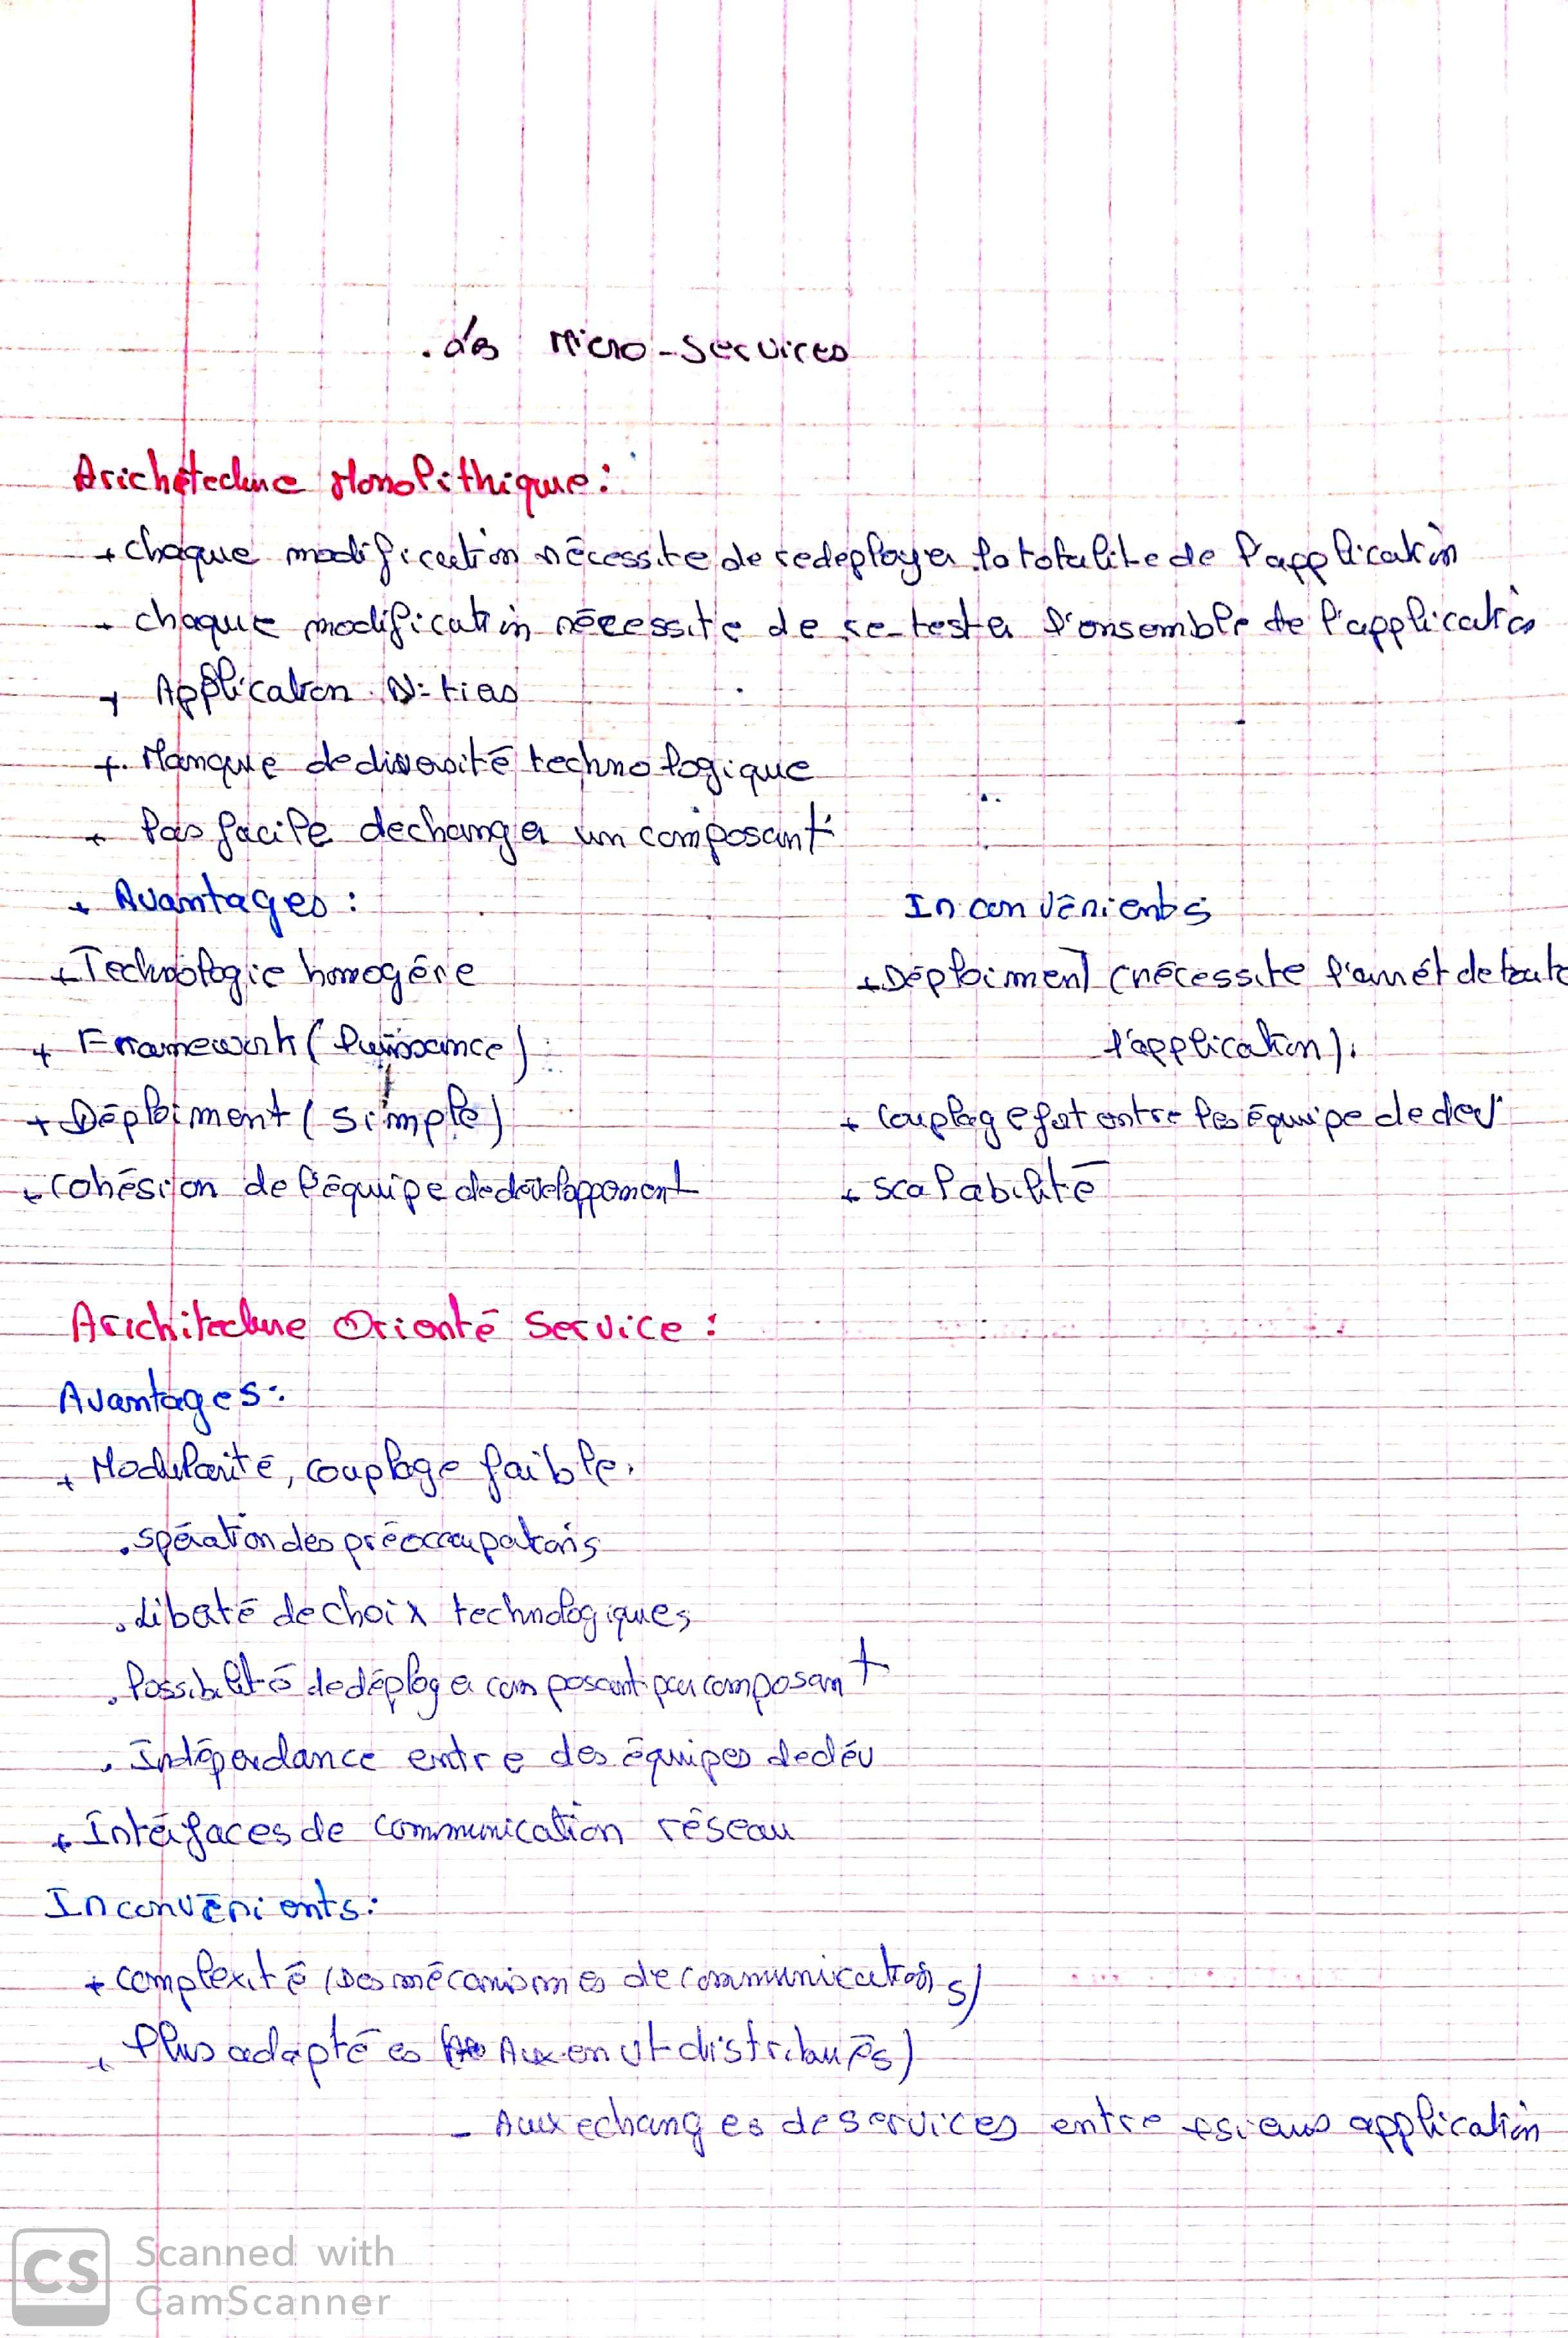 Les Micro-services
Architecture Monolithique :
+ chaque modification nécessite de redeployer la totalite de l'application
- chaque modification nécessite de re-tester l'ensemble de l'application
+ Application N-tiers
+ Manque de diversité technologique
+ Pas facile de changer un composant
+ Avantages :
Inconvénients
+ Technologie homogére
+ Déploiment (nécessite l'arrêt de toute
l'application).
+ Framework (Puissance)
+ Déploiment (simple)
+ couplage fort entre les équipe de dev
+ cohésion de l'équipe de développement
+ scalabilité
Architecture Orienté Service :
Avantages :
+ Modularité, couplage faible.
. spération des préoccupations
. Liberté de choix technologiques
. Possibilité de déployer composant par composant
. Indépendance entre des équipes de dév
+ Interfaces de communication réseau
Inconvénients :
+ complexité (Des mécanismes de communications)
+ Plus adaptées Aux envt distribués)
- Aux echanges de services entre application
Scanned with
CamScanner
CS